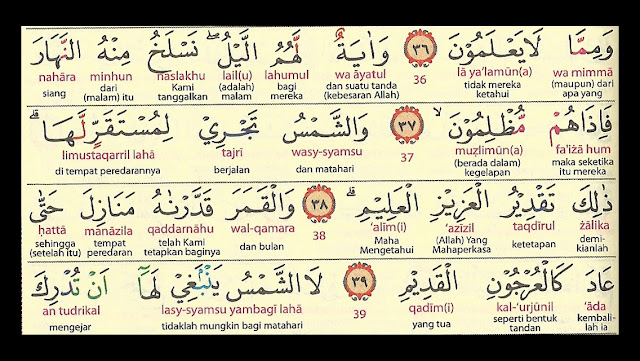 وَمِمَّا لَا يَعْلَمُوْنَ ٣٦ وَاٰيَةٌ لَّهُمُ الَّيْلُ ۖ نَسْلَخُ مِنْهُ النَّهَارَ
wa mimmā lā ya‘lamūn(a) 36 wa āyatul lahumul lail(u) naslakhu minhun nahāra
(maupun) dari apa yang tidak mereka ketahui dan suatu tanda (kebesaran Allah) bagi mereka (adalah) malam Kami tanggalkan dari (malam) itu siang
فَاِذَا هُمْ مُّظْلِمُوْنَ ۙ ٣٧ وَالشَّمْسُ تَجْرِيْ لِمُسْتَقَرٍّ لَّهَا ۗ
fa'iżā hum muẓlimūn(a) 37 wasy-syamsu tajrī limustaqarril lahā
maka seketika itu mereka (berada dalam) kegelapan dan matahari berjalan di tempat peredarannya
ذٰلِكَ تَقْدِيْرُ الْعَزِيْزِ الْعَلِيْمِ ۗ ٣٨ وَالْقَمَرَ قَدَّرْنٰهُ مَنَازِلَ حَتّٰى
żālika taqdīrul ‘azīzil ‘alīm(i) 38 wal-qamara qaddarnāhu manāzila ḥattā
demi-kianlah ketetapan (Allah) Yang Mahaperkasa Maha Mengetahui dan bulan telah Kami tetapkan baginya tempat peredaran sehingga (setelah itu)
عَادَ كَالْعُرْجُوْنِ الْقَدِيْمِ ٣٩ لَا الشَّمْسُ يَنْۢبَغِيْ لَهَآ اَنْ تُدْرِكَ
‘āda kal-‘urjūnil qadīm(i) 39 lasy-syamsu yambagī lahā an tudrikal
kembali-lah ia seperti bentuk tandan yang tua tidaklah mungkin bagi matahari mengejar